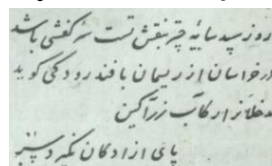 روز سپید سایه چتر بنفش تست که کفشی باشد
در خراسان از ریسمان بافند رودکی گوید
مدخلان را رکاب زرآگین
پای ازادکان نیابد سر